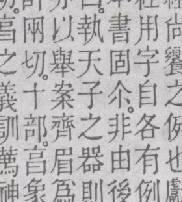 尚之例也戲
用字自各有例
書固尒。非由後
執天子之器則
以舉案齊眉爲
兩切。十部。亯象
直之義訓薦神